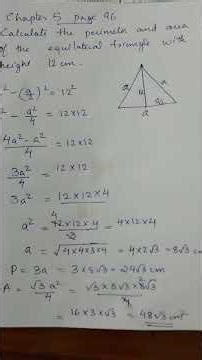 Chapter 5 page 96
Calculate the perimeter and area
of the equilateral triangle with
height 12 cm.
a
a
12
a/2
a
² - (a/2)² = 12²
² - a²/4 = 12×12
4a² - a²/4 = 12×12
3a²/4 = 12×12
3a² = 12×12×4
a² = 12×12×4/3 = 4×12×4
a = √4×4×4×3 = 4×2√3 = 8√3 cm
P = 3a = 3×8√3 = 24√3 cm
A = √3a²/4 = √3×8√3×8√3/4
= 16×3×√3 = 48√3 cm²